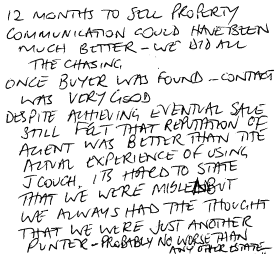 12 MONTHS TO SELL PROPERTY
COMMUNICATION COULD HAVE BEEN
MUCH BETTER - WE DID ALL
THE CHASING
ONCE BUYER WAS FOUND - CONTACT
WAS VERY GOOD
DESPITE ACHIEVING EVENTUAL SALE
STILL FELT THAT REPUTATION OF
AGENT WAS BETTER THAN THE
ACTUAL EXPERIENCE OF USING
JCOUCH. ITS HARD TO STATE
THAT WE WERE MISLED BUT
WE ALWAYS HAD THE THOUGHT
THAT WE WERE JUST ANOTHER
PUNTER - PROBABLY NO WORSE THAN
ANY OTHER ESTATE